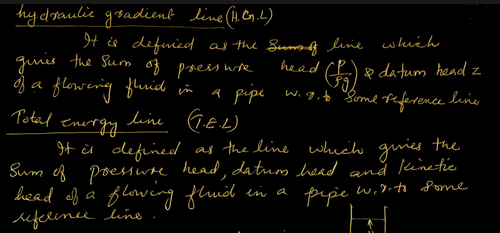 hydraulic gradient line (H.G.L)
It is defined as the Sum of line which
gives the Sum of pressure head (P/ρg) & datum head z
of a flowing fluid in a pipe w.r.to Some reference line
Total energy line (T.E.L)
It is defined as the line which gives the
Sum of pressure head, datum head and Kinetic
head of a flowing fluid in a pipe w.r.to Some
reference line.